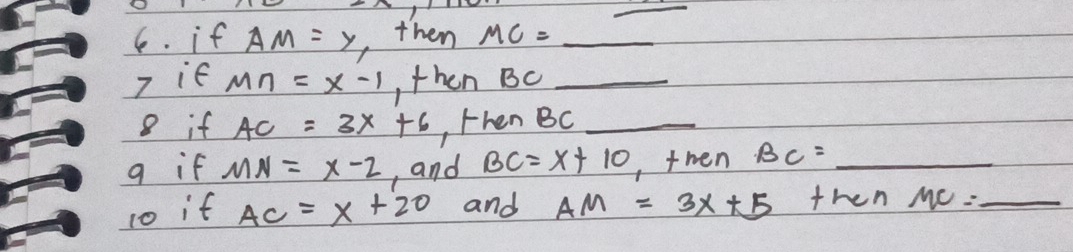 6. if AM = y, then MC = ____
7 if Mn = x-1, then BC ____
8 if AC = 3x + 6, then BC ____
9 if MN = x-2, and BC = x + 10, then BC = ____
10 if AC = x + 20 and AM = 3x + 5 then MC = ____